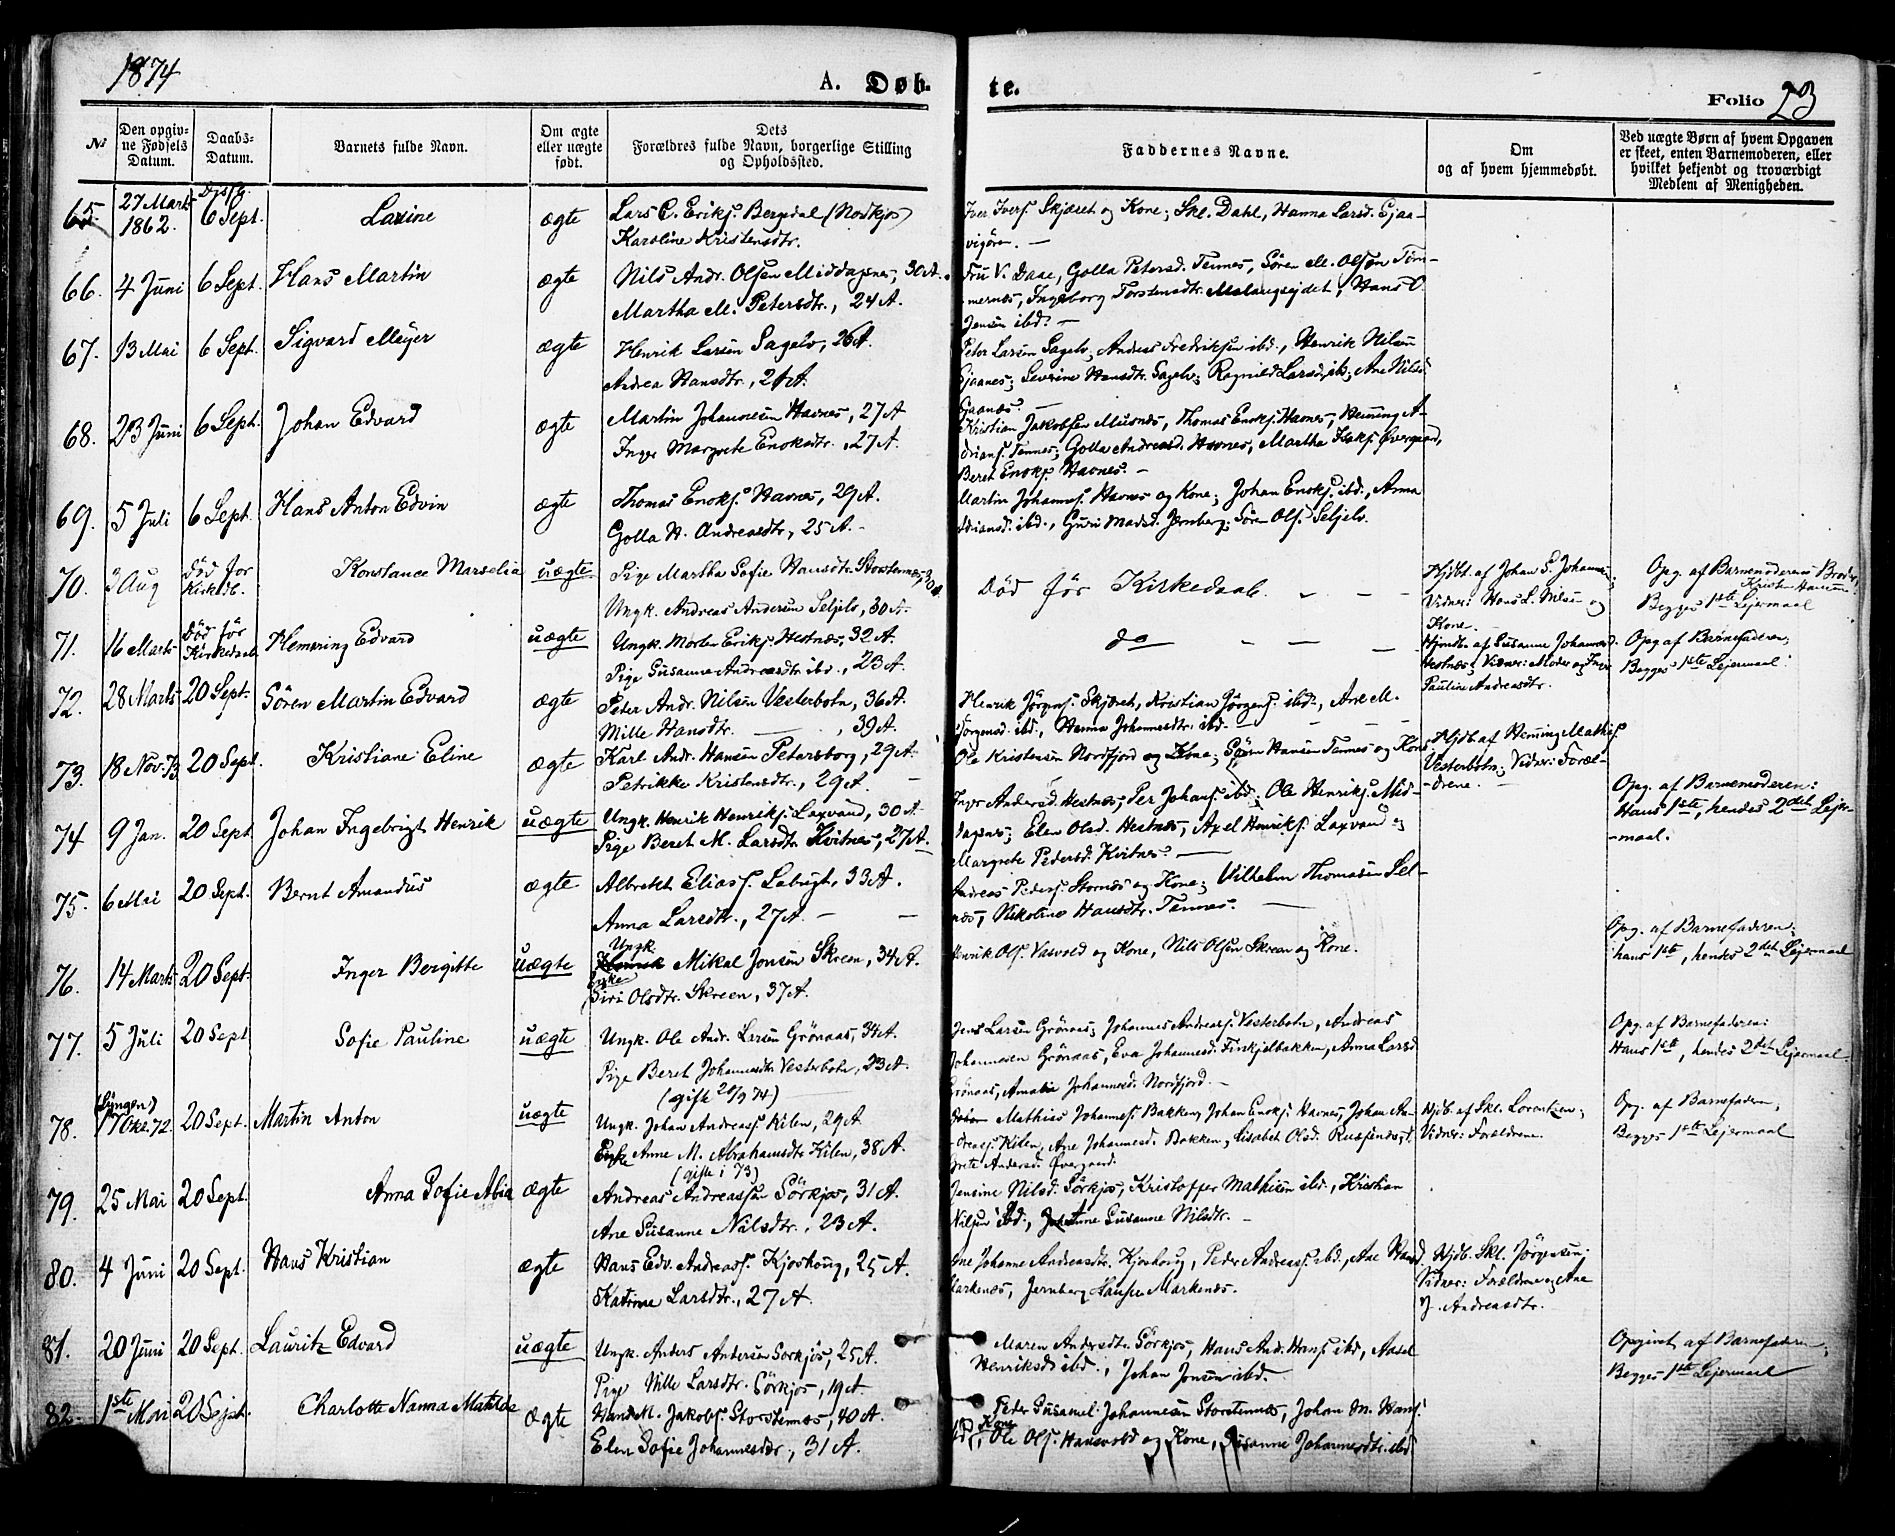 1874
A. Døb-
te.
Folio 23
№
Den opgiv-
ne Fødsels
Datum.
Daabs-
Datum.
Barnets fulde Navn.
Om ægte
eller uægte
født.
Dets
Forældres fulde Navn, borgerlige Stilling
og Opholdssted.
Faddernes Navne.
Om
og af hvem hjemmedøbt.
Ved uægte Børn af hvem Opgaven
er skeet, enten Barnemoderen, eller
hvilket bekjendt og troværdigt
Medlem af Menigheden.
65 27 Marts 1862. 6 Sept. Lavine ægte
Lars C. Eriks. Bergdal (Nordkjos)
Karoline Kristensdtr.
Iver Ivers. Skjæret og Kone; Skl. Dahl, Hanna Larsd. Sjaa-
vigøren. —
66. 4 Juni 6 Sept. Hans Martin ægte
Nils Andr. Olsen Middagsnes, 30 A.
Martha M. Petersdtr., 24 A.
Fru V. Daae, Golla Petersd. Tennes, Sören M. Olsen Töm-
mernes, Ingeborg Torstensdtr. Malangseidet, Hans O.
Jensen ibd. —
67. 13 Mai 6 Sept. Sigvard Meyer ægte
Henrik Larsen Sagelv, 26 A.
Andrea Hansdtr., 21 A.
Peter Larsen Sagelv, Andreas Fredriksen ibd., Henrik Nilsen
Sjaanes; Severine Hansdtr. Sagelv; Ragnild Larsd. ib.; Ane Nilsd.
Sjaanes. —
68. 23 Juni 6 Sept. Johan Edvard ægte
Martin Johannesen Havnes, 27 A
Inger Margrete Enoksdtr., 27 A.
Kristian Jakobsen Maisnes, Thomas Enoks. Havnes, Henning A-
drians. Tennes; Golla Andreasd. Havnes, Martha Isaks. Øvergaard,
Beret Enoks. Havnes. —
69. 5 Juli 6 Sept. Hans Anton Edvin ægte
Thomas Enoks. Havnes, 29 A.
Golla H. Andreasdtr., 25 A. -
Martin Johannes. Havnes og Kone; Johan Enoks. ibd., Anna
Adriansd. ibd., Guri Madsd. Jernberg; Sören Ols. Seljelv.
70. 2 Aug Död for Kirkedb. Konstance Marselia uægte
Pige Martha Sofie Hansdtr. Storstennes, 30 A.
Ungk. Andreas Andersen Seljelv, 30 A.
Död för Kirkedaab. - - -
Hjdbt. af Johan S. Johannesen;
Vidner: Hans L. Nilsen og
Kone.
Opg. af Barnemoderens Broder,
Kristen Hansen
Begges 1ste Lejermaal
71. 16 Marts Död för Kirkedaab Hemming Edvard uægte
Ungk. Morten Eriks. Hestnæs, 32 A.
Pige Susanne Andreasdtr. ibd., 23 A.
do — — —
Hjmdbt. af Susanne Johannesd.
Hestnæs; Vidner: Moder og Inger
Pauline Andreasdtr.
Opg af Barnefaderen;
Begges 1ste Lejermaal.
72. 28 Marts 20 Sept. Sören Martin Edvard ægte
Peter Andr. Nilsen Vesterbotn, 36 A.
Mille Hansdtr. — , 39 A.
Henrik Jörgens. Skjæret, Kristian Jörgens. ibd., Ane M.
Jörgensd. ibd., Hanna Johannesdtr. ibd. —
73. 18 Nov. 73 20 Sept. Kristiane Eline ægte
Karl Andr. Hansen Petersborg, 29 A.
Petrikke Kristensdtr., 29 A. —
Ole Kristensen Nordfjord og Kone; Sören Hansen Tennes og Kone
Hjdbt. af Henning Mathis.
Vesterbotn; Vidner: Foræl-
drene. —
74 9 Jan. 20 Sept Johan Ingebrigt Henrik uægte
Ungk. Henrik Henriks. Laxvand, 30 A.
Pige Beret M. Larsdtr. Kvitnes, 27 A.
Inger Andersd. Hestnes; Per Johans. ibd; Ole Henriks. Mid-
dagsnes; Elen Olsd. Hestnæs, Axel Henriks. Laxvand og
Margrete Pedersd. Kvitnes. —
Opg. af Barnemoderen:
Hans 1ste, hendes 2det Lejer-
-maal.
75. 6 Mai 20 Sept. Bernt Amandus ægte
Albrekt Eliass. Labugt, 33 A.
Anna Larsdtr., 27 A. — —
Andreas Peders. Stornes og Kone; Vilhelm Thomasen Sel-
næs, Nikoline Hansdtr. Tennes. —
76. 14 Marts 20 Sept. Inger Bergitte uægte
Ungk. Mikal Jonsen Skreen, 34 A.
Enke Siri Olsdtr. Skreen, 37 A.
Henrik Ols. Vasvold og Kone, Nils Olsen Skreen og Kone.
Opg. af Barnefaderen;
hans 1ste, hendes 2det Lejermaal
77. 5 Juli 20 Sept Sofie Pauline uægte
Ungk. Ole Andr. Larsen Grönaas, 34 A.
Pige Beret Johannesdtr Vesterbotn, 23 A.
(gift 20/9 74)
Jens Larsen Grönaas; Johannes Andreass. Vesterbotn, Andreas
Johannesen Grönaas, Eva Johannesd. Finkjelbakken, Anna Larsd
Grönaas, Amalie Johannesd. Nordfjord. —
Opg. af Barnefaderen:
Hans 1ste, hendes 2det Lejermaal.
78. (Lyngen) 17 Okt. 72. 20 Sept. Martin Anton uægte
Ungk. Johan Andreass Kilen, 29 A
Enke Anne M. Abrahamsdtr Kilen, 38 A.
(gifte i 73)
Mathias Johannes. Bakken, Johan Enoks. Havnes, Johan An-
dreass Kilen, Ane Johannesd. Bakken, Lisabet Olsd. Russenes,
Grete Andersd. Øvergaard.
Hjdb. af Skl. Lorentzen;
Vidner: Forældrene.
Opg. af Barnefaderen;
Begges 1ste Lejermaal
79. 25 Mai 20 Sept. Anna Sofie Abia ægte
Andreas Andreassen Sörkjos, 31 A.
Ane Susanne Nilsdtr., 23 A.
Jensine Nilsd. Sörkjos, Kristoffer Mathisen ibd., Kristian
Nilsen ibd., Anne Susanne Nilsdtr. —
80. 4 Juni 20 Sept. Hans Kristian ægte
Hans Edv. Andreass. Kjoshoug, 25 A.
Katrine Larsdtr., 27 A.
Ane Johanne Andreasdtr. Kjoshoug, Peder Andreass. ibd., Ane Hansd
Markenæs, Jernberg Hansen Markenes.
Hjdb. Skl. Jörgensen;
Vidner: Forældrene og Ane
J. Andreasdtr.
81. 20 Juni 20 Sept. Lauritz Edvard uægte
Ungk. Anders Andersen Sorkjos, 25 A.
Pige Nille Larsdtr. Sörkjos, 19 A.
Maren Andersdtr. Sörkjos, Hans And. Hans. ibd, Aasel
Henriksd. ibd., Johan Jonsen ibd.
Opgivet af Barnefaderen;
Begges 1ste Lejermaal
82. 1ste Mai 20 Sept. Charlotte Nanna Matilde ægte
Hans M. Jakobs. Storstennes, 40 A.
Elen Sofie Johannesdtr., 31 A.
Peder Susamel Johannesen Storstennes, Johan M. Hans.
ibd, Kone, Ole Ols. Hansvold og Kone, Susanne Johannesdtr. ibd